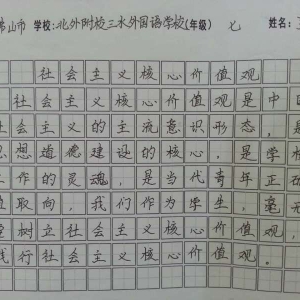 佛山市 学校:北外附校三水外国语学校(年级) 七 姓名:
社会主义核心价值观
社会主义核心价值观是中国
社会主义的主流意识形态,是
思想道德建设的核心,是学校
工作的灵魂,是当代青年正确
值取向,我们作为学生,毫无
要树立社会主义核心价值观,
践行社会主义核心价值观。